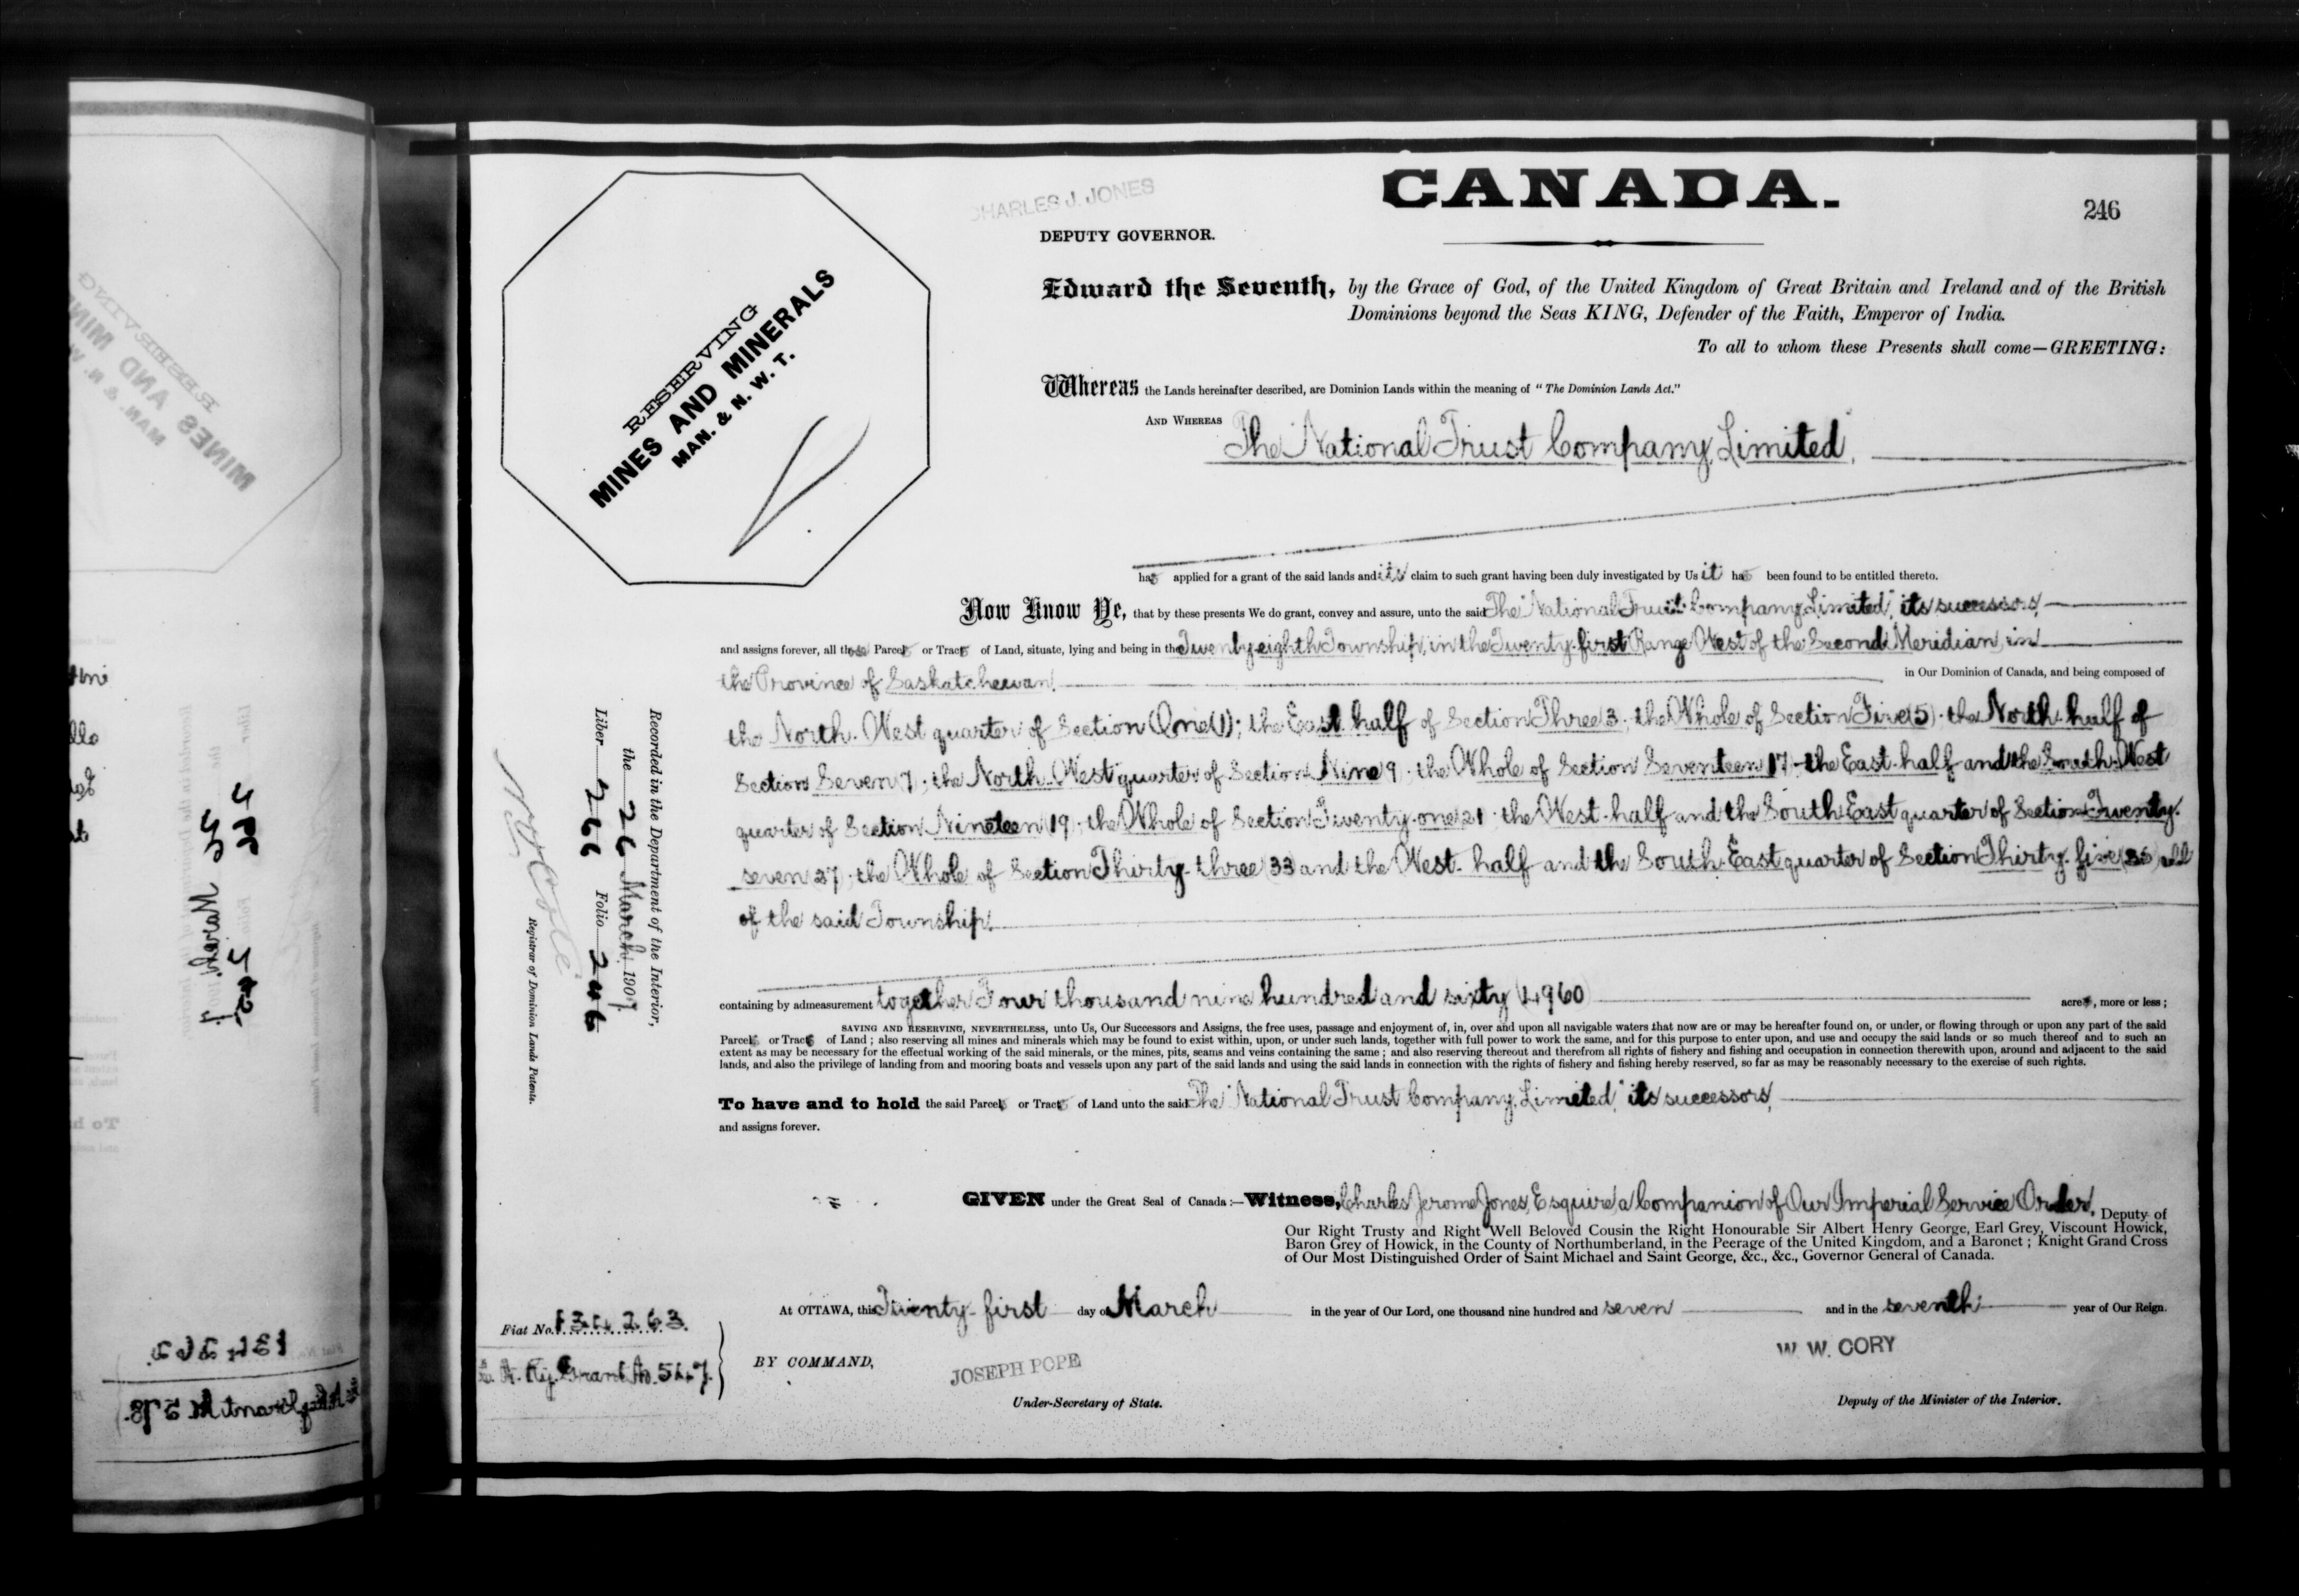 CHARLES J. JONES
CANADA.
246
DEPUTY GOVERNOR.
RESERVING
MINES AND MINERALS
MAN. & N. W. T.
Edward the Seventh, by the Grace of God, of the United Kingdom of Great Britain and Ireland and of the British
Dominions beyond the Seas KING, Defender of the Faith, Emperor of India.
To all to whom these Presents shall come—GREETING:
Whereas the Lands hereinafter described, are Dominion Lands within the meaning of "The Dominion Lands Act."
AND WHEREAS "The National Trust Company, Limited",
has applied for a grant of the said lands and its claim to such grant having been duly investigated by Us it has been found to be entitled thereto.
Now Know Ye, that by these presents We do grant, convey and assure, unto the said "The National Trust Company, Limited", its successors,
and assigns forever, all those Parcels or Tracts of Land, situate, lying and being in the Twenty-eighth Township, in the Twenty-first Range West of the Second Meridian, in
the Province of Saskatchewan, in Our Dominion of Canada, and being composed of
the North-West quarter of Section One (1); the East half of Section Three (3); the Whole of Section Five (5); the North half of
Section Seven (7); the North-West quarter of Section Nine (9); the Whole of Section Seventeen (17); the East half and the South-West
quarter of Section Nineteen (19); the Whole of Section Twenty-one (21); the West half and the South East quarter of Section Twenty-
seven (27); the Whole of Section Thirty-three (33) and the West half and the South East quarter of Section Thirty-five (35) all
of the said Township.
containing by admeasurement together Four thousand nine hundred and sixty (4960) acres, more or less;
SAVING AND RESERVING, NEVERTHELESS, unto Us, Our Successors and Assigns, the free uses, passage and enjoyment of, in, over and upon all navigable waters that now are or may be hereafter found on, or under, or flowing through or upon any part of the said
Parcels or Tracts of Land; also reserving all mines and minerals which may be found to exist within, upon, or under such lands, together with full power to work the same, and for this purpose to enter upon, and use and occupy the said lands or so much thereof and to such an
extent as may be necessary for the effectual working of the said minerals, or the mines, pits, seams and veins containing the same; and also reserving thereout and therefrom all rights of fishery and fishing and occupation in connection therewith upon, around and adjacent to the said
lands, and also the privilege of landing from and mooring boats and vessels upon any part of the said lands and using the said lands in connection with the rights of fishery and fishing hereby reserved, so far as may be reasonably necessary to the exercise of such rights.
To have and to hold the said Parcels or Tracts of Land unto the said "The National Trust Company, Limited", its successors,
and assigns forever.
GIVEN under the Great Seal of Canada:—Witness, Charles Jerome Jones, Esquire, a Companion of Our Imperial Service Order, Deputy of
Our Right Trusty and Right Well Beloved Cousin the Right Honourable Sir Albert Henry George, Earl Grey, Viscount Howick,
Baron Grey of Howick, in the County of Northumberland, in the Peerage of the United Kingdom, and a Baronet; Knight Grand Cross
of Our Most Distinguished Order of Saint Michael and Saint George, &c., &c., Governor General of Canada.
At OTTAWA, this Twenty-first day of March in the year of Our Lord, one thousand nine hundred and seven and in the seventh year of Our Reign.
BY COMMAND,
JOSEPH POPE
Under-Secretary of State.
W. W. CORY
Deputy of the Minister of the Interior.
Fiat No. 134263
Ry. Grant No. 547
Recorded in the Department of the Interior,
the 26 March 1907
Liber 266 Folio 246
Registrar of Dominion Lands Patents.